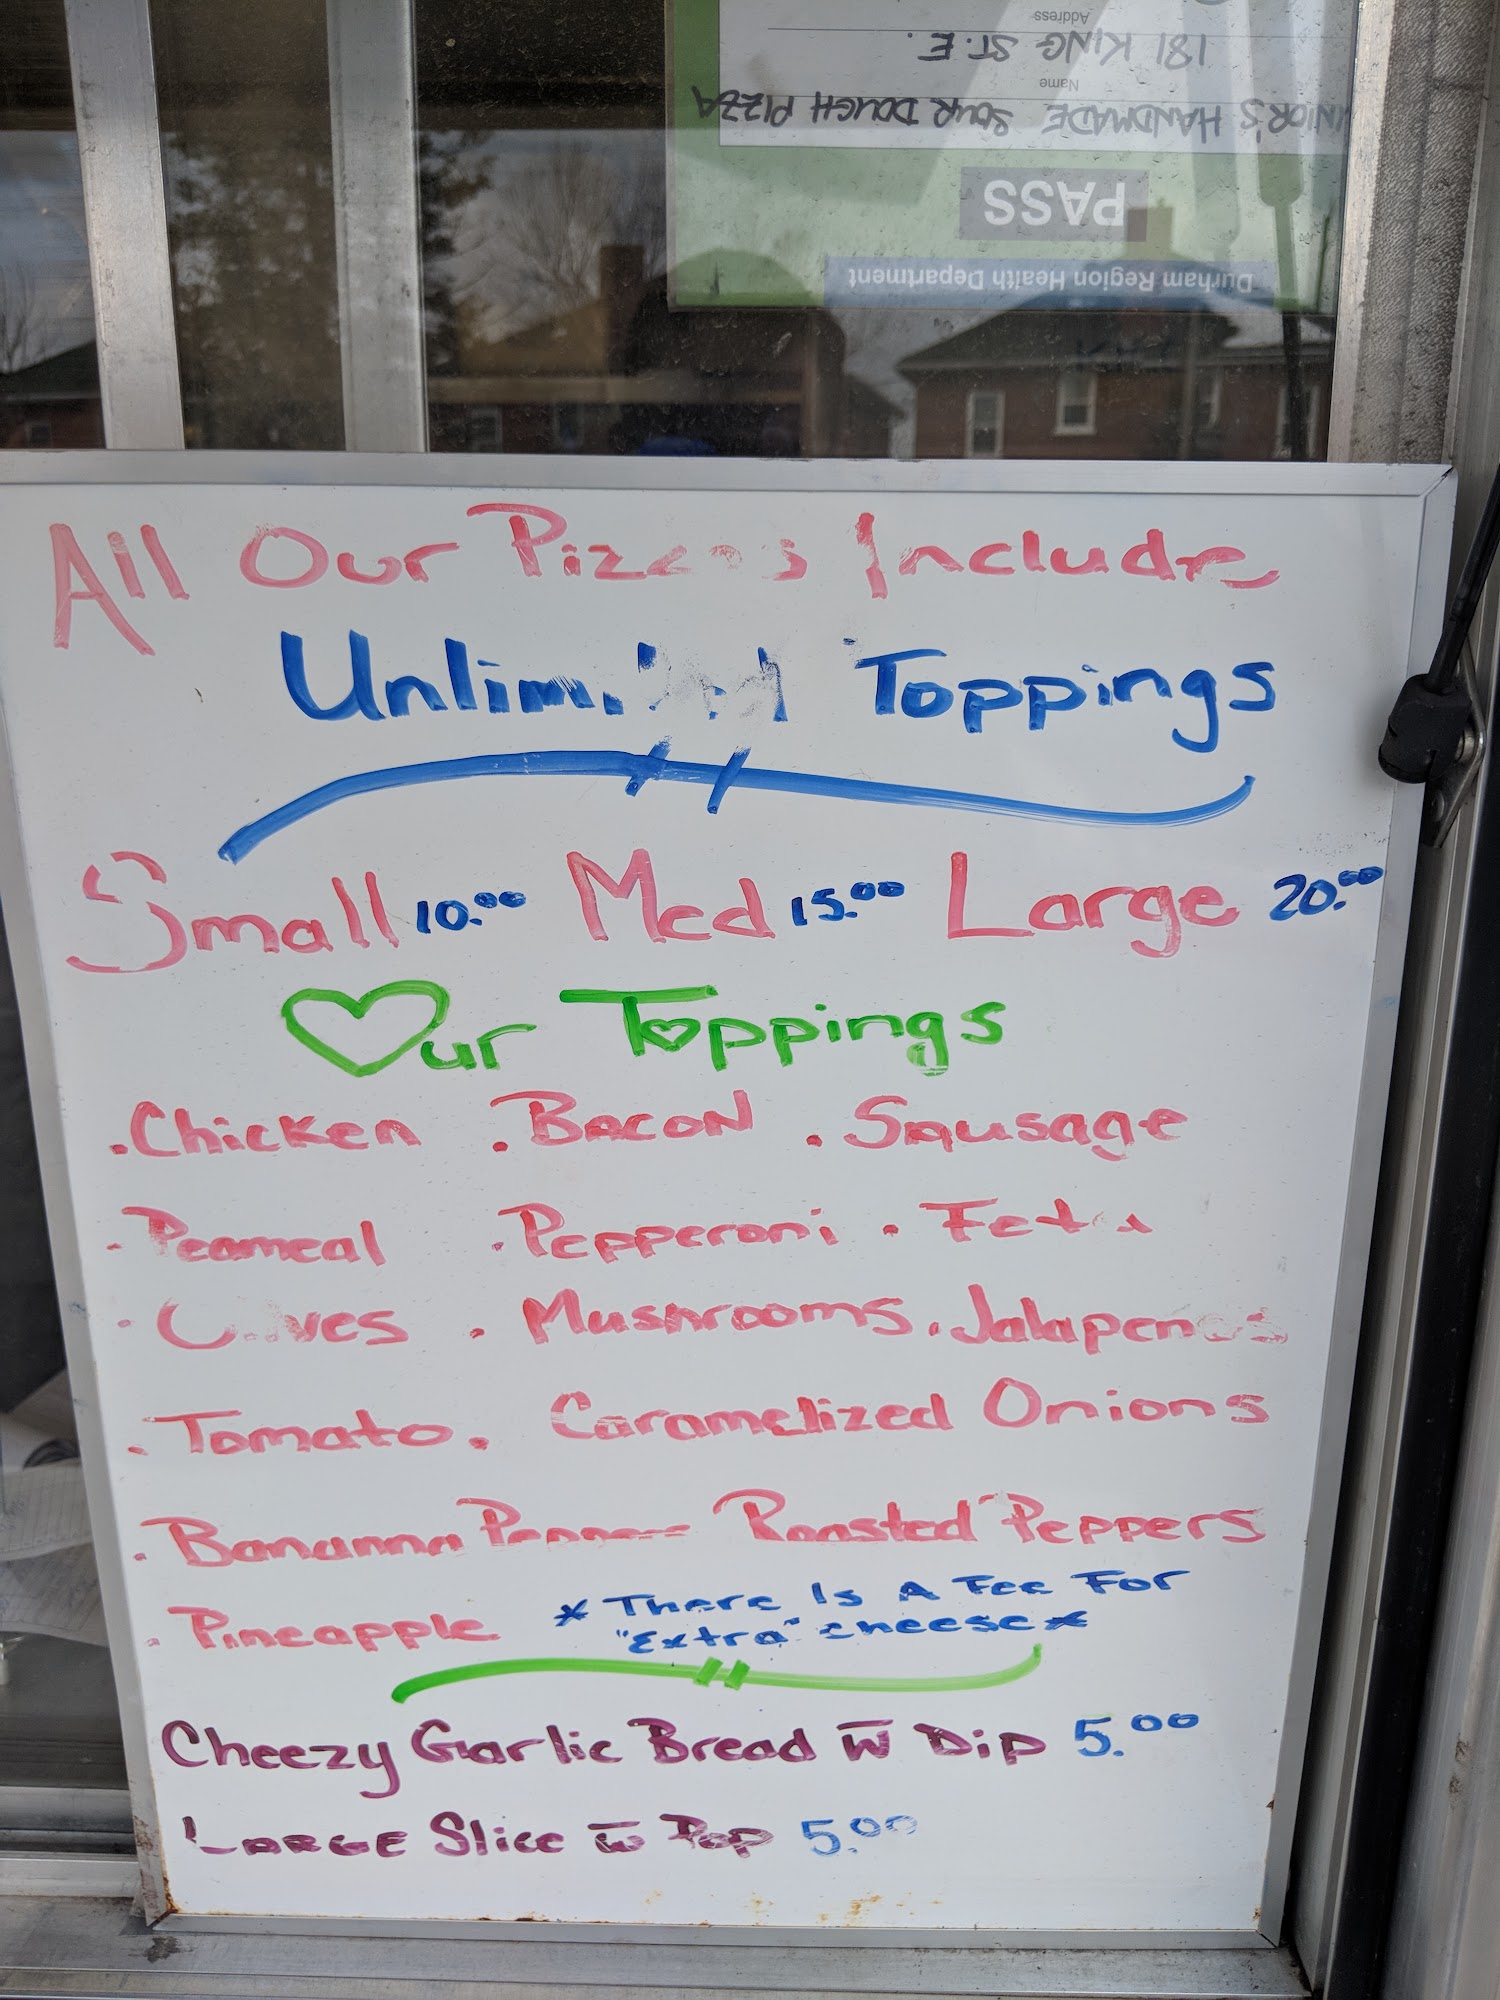 Address
181 KING ST. E.
Name
NIOR'S HANDMADE SOUR DOUGH PIZZA
PASS
Durham Region Health Department
All Our Pizzas Include
Unlimited Toppings
Small 10.00 Med 15.00 Large 20.00
Our Toppings
.Chicken .Bacon .Sausage
.Peameal .Pepperoni .Feta
.Olives .Mushrooms .Jalapenos
.Tomato .Caramelized Onions
.Bananna Pepper Roasted Peppers
.Pineapple *There Is A Fee For
"Extra" cheese*
Cheezy Garlic Bread w Dip 5.00
LARGE Slice w Pop 5.00